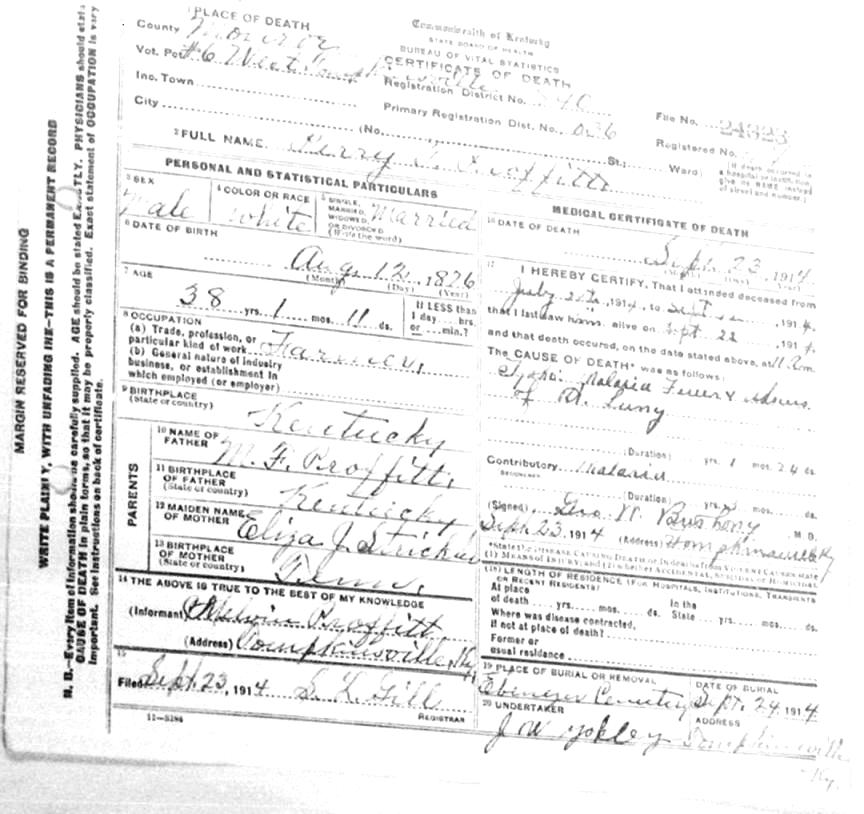 MARGIN RESERVED FOR BINDING
WRITE PLAINLY, WITH UNFADING INK—THIS IS A PERMANENT RECORD
N. B.—Every item of information should be carefully supplied. AGE should be stated EXACTLY. PHYSICIANS should state
CAUSE OF DEATH in plain terms, so that it may be properly classified. Exact statement of OCCUPATION is very
important. See instructions on back of certificate.
PLACE OF DEATH
County Monroe
Vot. Pct #6 West Tompkinsville
Inc. Town
City
(No. St.; Ward)
Commonwealth of Kentucky
STATE BOARD OF HEALTH
BUREAU OF VITAL STATISTICS
CERTIFICATE OF DEATH
Registration District No. 840
Primary Registration Dist. No.
File No. 24323
Registered No.
[If death occurred in
a hospital or institution,
give its NAME instead
of street and number.]
2 FULL NAME Perry Proffitt
PERSONAL AND STATISTICAL PARTICULARS
3 SEX
Male
4 COLOR OR RACE
White
5 SINGLE,
MARRIED,
WIDOWED,
OR DIVORCED
(Write the word)
Married
6 DATE OF BIRTH
Aug 12, 1876
(Month) (Day) (Year)
7 AGE
38 yrs. 1 mos. 11 ds.
If LESS than
1 day ... hrs.
or ... min.?
8 OCCUPATION
(a) Trade, profession, or
particular kind of work Farmer,
(b) General nature of industry
business, or establishment in
which employed (or employer)
9 BIRTHPLACE
(State or country)
Kentucky
PARENTS
10 NAME OF
FATHER
M. F. Proffitt,
11 BIRTHPLACE
OF FATHER
(State or country)
Kentucky
12 MAIDEN NAME
OF MOTHER
Eliza J.
13 BIRTHPLACE
OF MOTHER
(State or country)
Tenn,
14 THE ABOVE IS TRUE TO THE BEST OF MY KNOWLEDGE
(Informant) Melvin Proffitt
(Address) Tompkinsville, Ky
15
Filed Sept. 23, 1914 S. L. Gill
REGISTRAR
11—5286
MEDICAL CERTIFICATE OF DEATH
16 DATE OF DEATH
Sept. 23, 1914
(Month) (Day) (Year)
17
I HEREBY CERTIFY, That I attended deceased from
July, 1914, to Sept, 1914,
that I last saw him alive on Sept 22, 1914,
and that death occured, on the date stated above, at m.
The CAUSE OF DEATH* was as follows:
Typho Malaria Fever
of Rt Lung
(Duration) yrs. 1 mos. 24 ds.
Contributory Malaria
SECONDARY
(Duration) yrs. mos. ds.
(Signed) Geo. W. Bushong M. D.
Sept. 23, 1914 (Address) Tompkinsville Ky
*State the DISEASE CAUSING DEATH or in deaths from VIOLENT CAUSES state
(1) MEANS OF INJURY; and (2) whether ACCIDENTAL, SUICIDAL or HOMICIDAL
(18) LENGTH OF RESIDENCE (FOR HOSPITALS, INSTITUTIONS, TRANSIENTS
OR RECENT RESIDENTS)
At place
of death ... yrs. ... mos. ... ds.
In the
State ... yrs. ... mos. ... ds.
Where was disease contracted,
if not at place of death?
Former or
usual residence
19 PLACE OF BURIAL OR REMOVAL
Ebenezer Cemetery
DATE OF BURIAL
Sept. 24, 1914
20 UNDERTAKER
J W Yokley
ADDRESS
Tompkinsville
Ky.